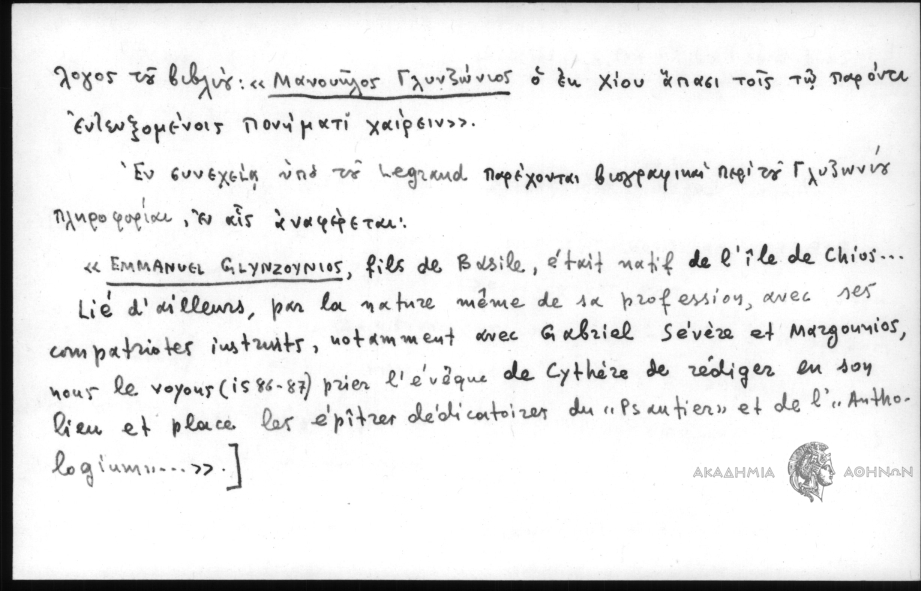 λογος τȣ͂ βιβλίȣ: «Μανουῆλος Γλυνζώνιος ὁ ἐκ Χίου ἅπασι τοῖς τῷ παρόντι
ἐντευξομένοις πονήματι χαίρειν».
Ἐν συνεχείᾳ ὑπὸ τȣ͂ Legrand παρέχονται βιογραφικαὶ περὶ τȣ͂ Γλυζωνίȣ
πληροφορίαι, ἐν αἷς ἀναφέρεται:
« EMMANUEL GLYNZOYNIOS, fils de Basile, était natif de l'île de Chios...
Lié d'ailleurs, par la nature même de sa profession, avec ses
compatriotes instruits, notamment avec Gabriel Sévère et Margounios,
nous le voyons (1586-87) prier l'évêque de Cythère de rédiger en son
lieu et place les épîtres dédicatoires du «Psautier» et de l'«Antho-
logium»...».]
ΑΚΑΔΗΜΙΑ ΑΘΗΝΩΝ